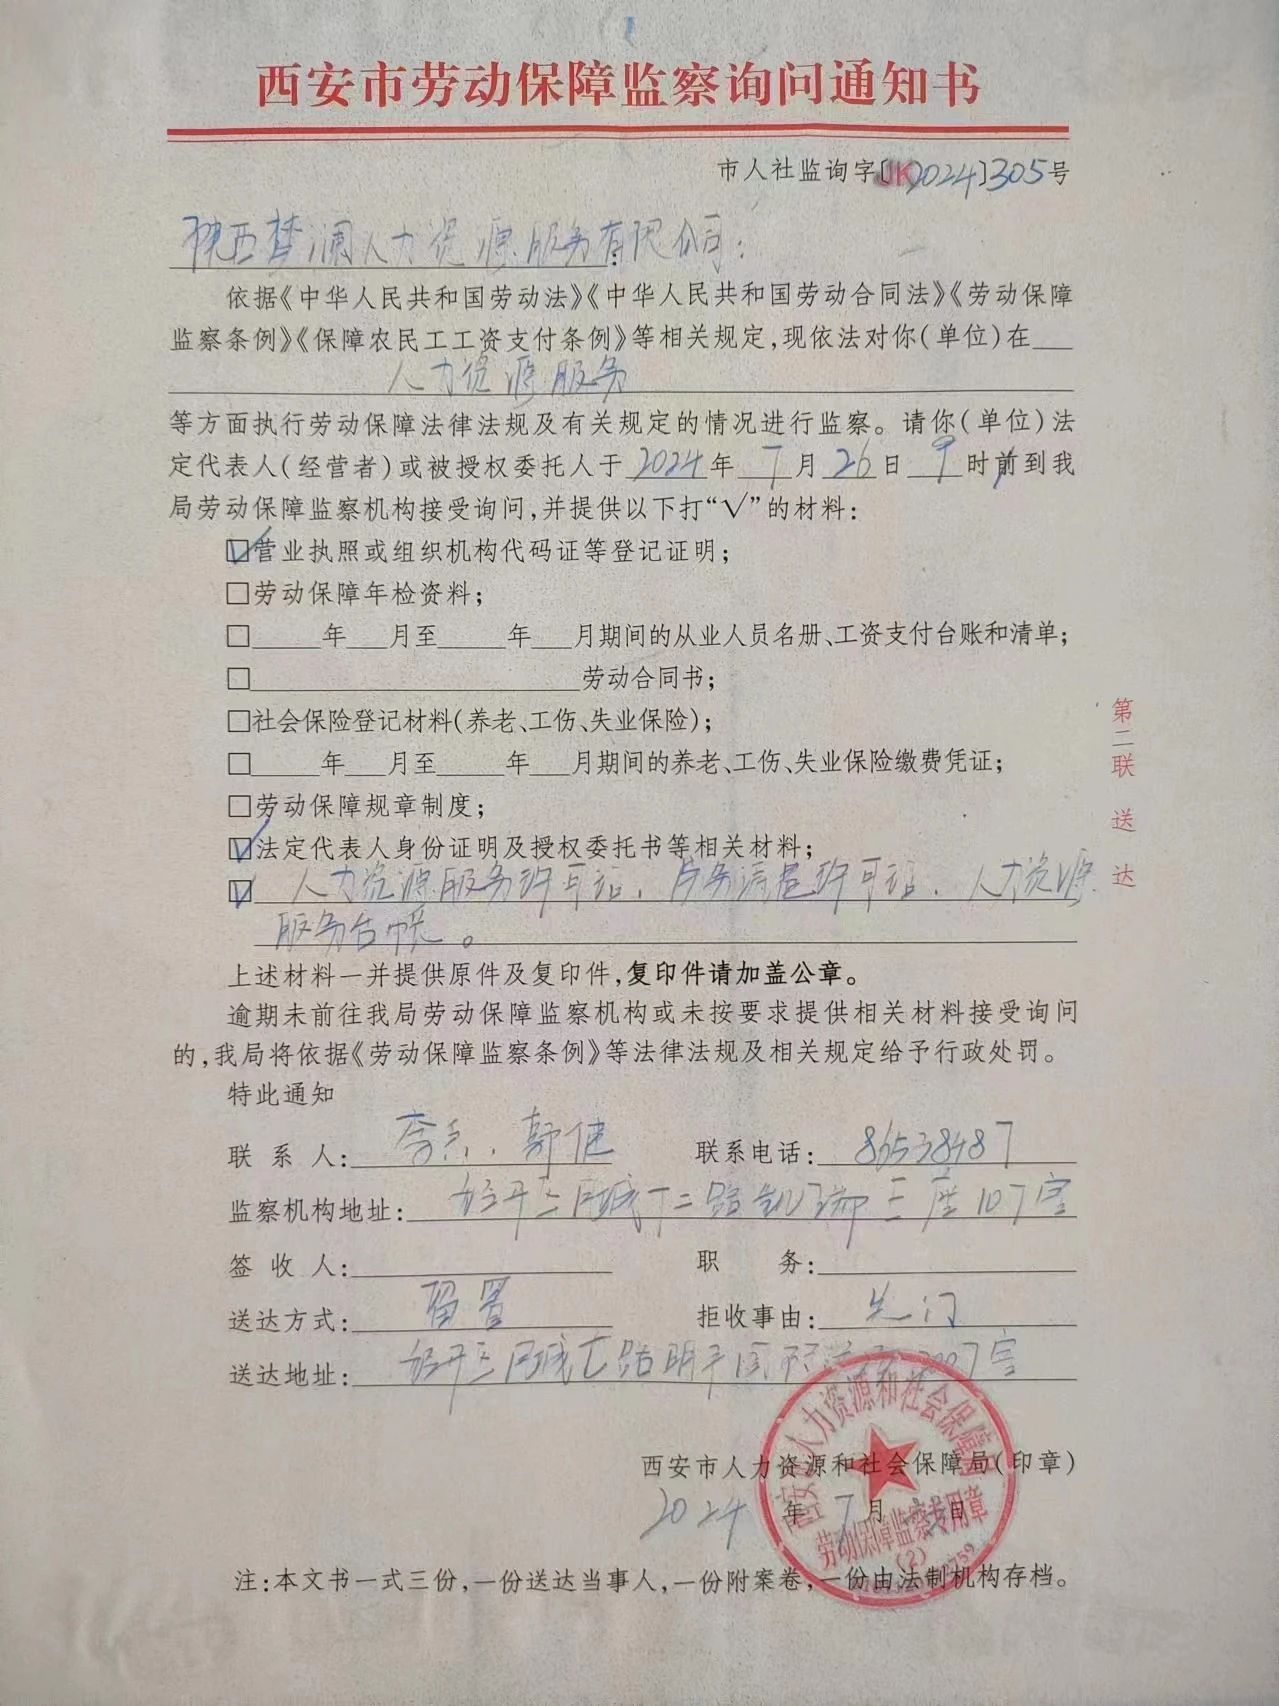 西安市劳动保障监察询问通知书
市人社监询字〔JK2024〕305号
陕西梦澜人力资源服务有限公司:
依据《中华人民共和国劳动法》《中华人民共和国劳动合同法》《劳动保障
监察条例》《保障农民工工资支付条例》等相关规定,现依法对你(单位)在
人力资源服务
等方面执行劳动保障法律法规及有关规定的情况进行监察。请你(单位)法
定代表人(经营者)或被授权委托人于2024年7月26日9时前到我
局劳动保障监察机构接受询问,并提供以下打“√”的材料:
☑营业执照或组织机构代码证等登记证明;
□劳动保障年检资料;
□____年__月至____年__月期间的从业人员名册、工资支付台账和清单;
□____________劳动合同书;
□社会保险登记材料(养老、工伤、失业保险);
□____年__月至____年__月期间的养老、工伤、失业保险缴费凭证;
□劳动保障规章制度;
☑法定代表人身份证明及授权委托书等相关材料;
☑人力资源服务许可证、劳务派遣许可证、人力资源
服务台帐。
上述材料一并提供原件及复印件,复印件请加盖公章。
逾期未前往我局劳动保障监察机构或未按要求提供相关材料接受询问
的,我局将依据《劳动保障监察条例》等法律法规及相关规定给予行政处罚。
特此通知
联系人: 郭健 联系电话:86538487
监察机构地址:经开区凤城十二路凯瑞三座107室
签收人: 职务:
送达方式:留置 拒收事由:
送达地址:经开区凤城七路明丰 室
西安市人力资源和社会保障局(印章)
2024年7月 日
西安市人力资源和社会保障局
劳动保障监察专用章
(2)
注:本文书一式三份,一份送达当事人,一份附案卷,一份由法制机构存档。
第二联 送达